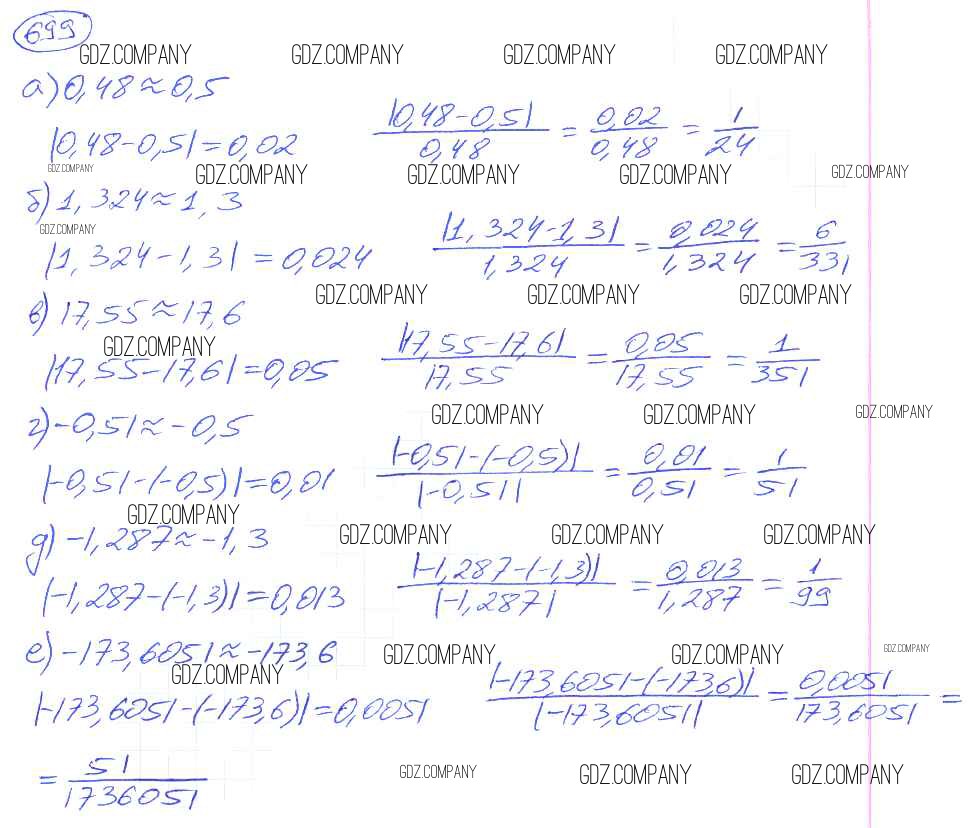 699
GDZ.COMPANY GDZ.COMPANY GDZ.COMPANY GDZ.COMPANY
а) 0,48 ≈ 0,5
|0,48-0,5| = 0,02 |0,48-0,5|/0,48 = 0,02/0,48 = 1/24
GDZ.COMPANY GDZ.COMPANY GDZ.COMPANY GDZ.COMPANY GDZ.COMPANY
б) 1,324 ≈ 1,3
GDZ.COMPANY
|1,324-1,3| = 0,024 |1,324-1,3|/1,324 = 0,024/1,324 = 6/331
GDZ.COMPANY GDZ.COMPANY GDZ.COMPANY
в) 17,55 ≈ 17,6
GDZ.COMPANY
|17,55-17,6| = 0,05 |17,55-17,6|/17,55 = 0,05/17,55 = 1/351
GDZ.COMPANY GDZ.COMPANY GDZ.COMPANY
г) -0,51 ≈ -0,5
|-0,51-(-0,5)| = 0,01 |-0,51-(-0,5)|/|-0,51| = 0,01/0,51 = 1/51
GDZ.COMPANY GDZ.COMPANY GDZ.COMPANY GDZ.COMPANY
д) -1,287 ≈ -1,3
|-1,287-(-1,3)| = 0,013 |-1,287-(-1,3)|/|-1,287| = 0,013/1,287 = 1/99
е) -173,6051 ≈ -173,6
GDZ.COMPANY GDZ.COMPANY GDZ.COMPANY GDZ.COMPANY
|-173,6051-(-173,6)| = 0,0051 |-173,6051-(-173,6)|/|-173,6051| = 0,0051/173,6051 =
= 51/1736051
GDZ.COMPANY GDZ.COMPANY GDZ.COMPANY